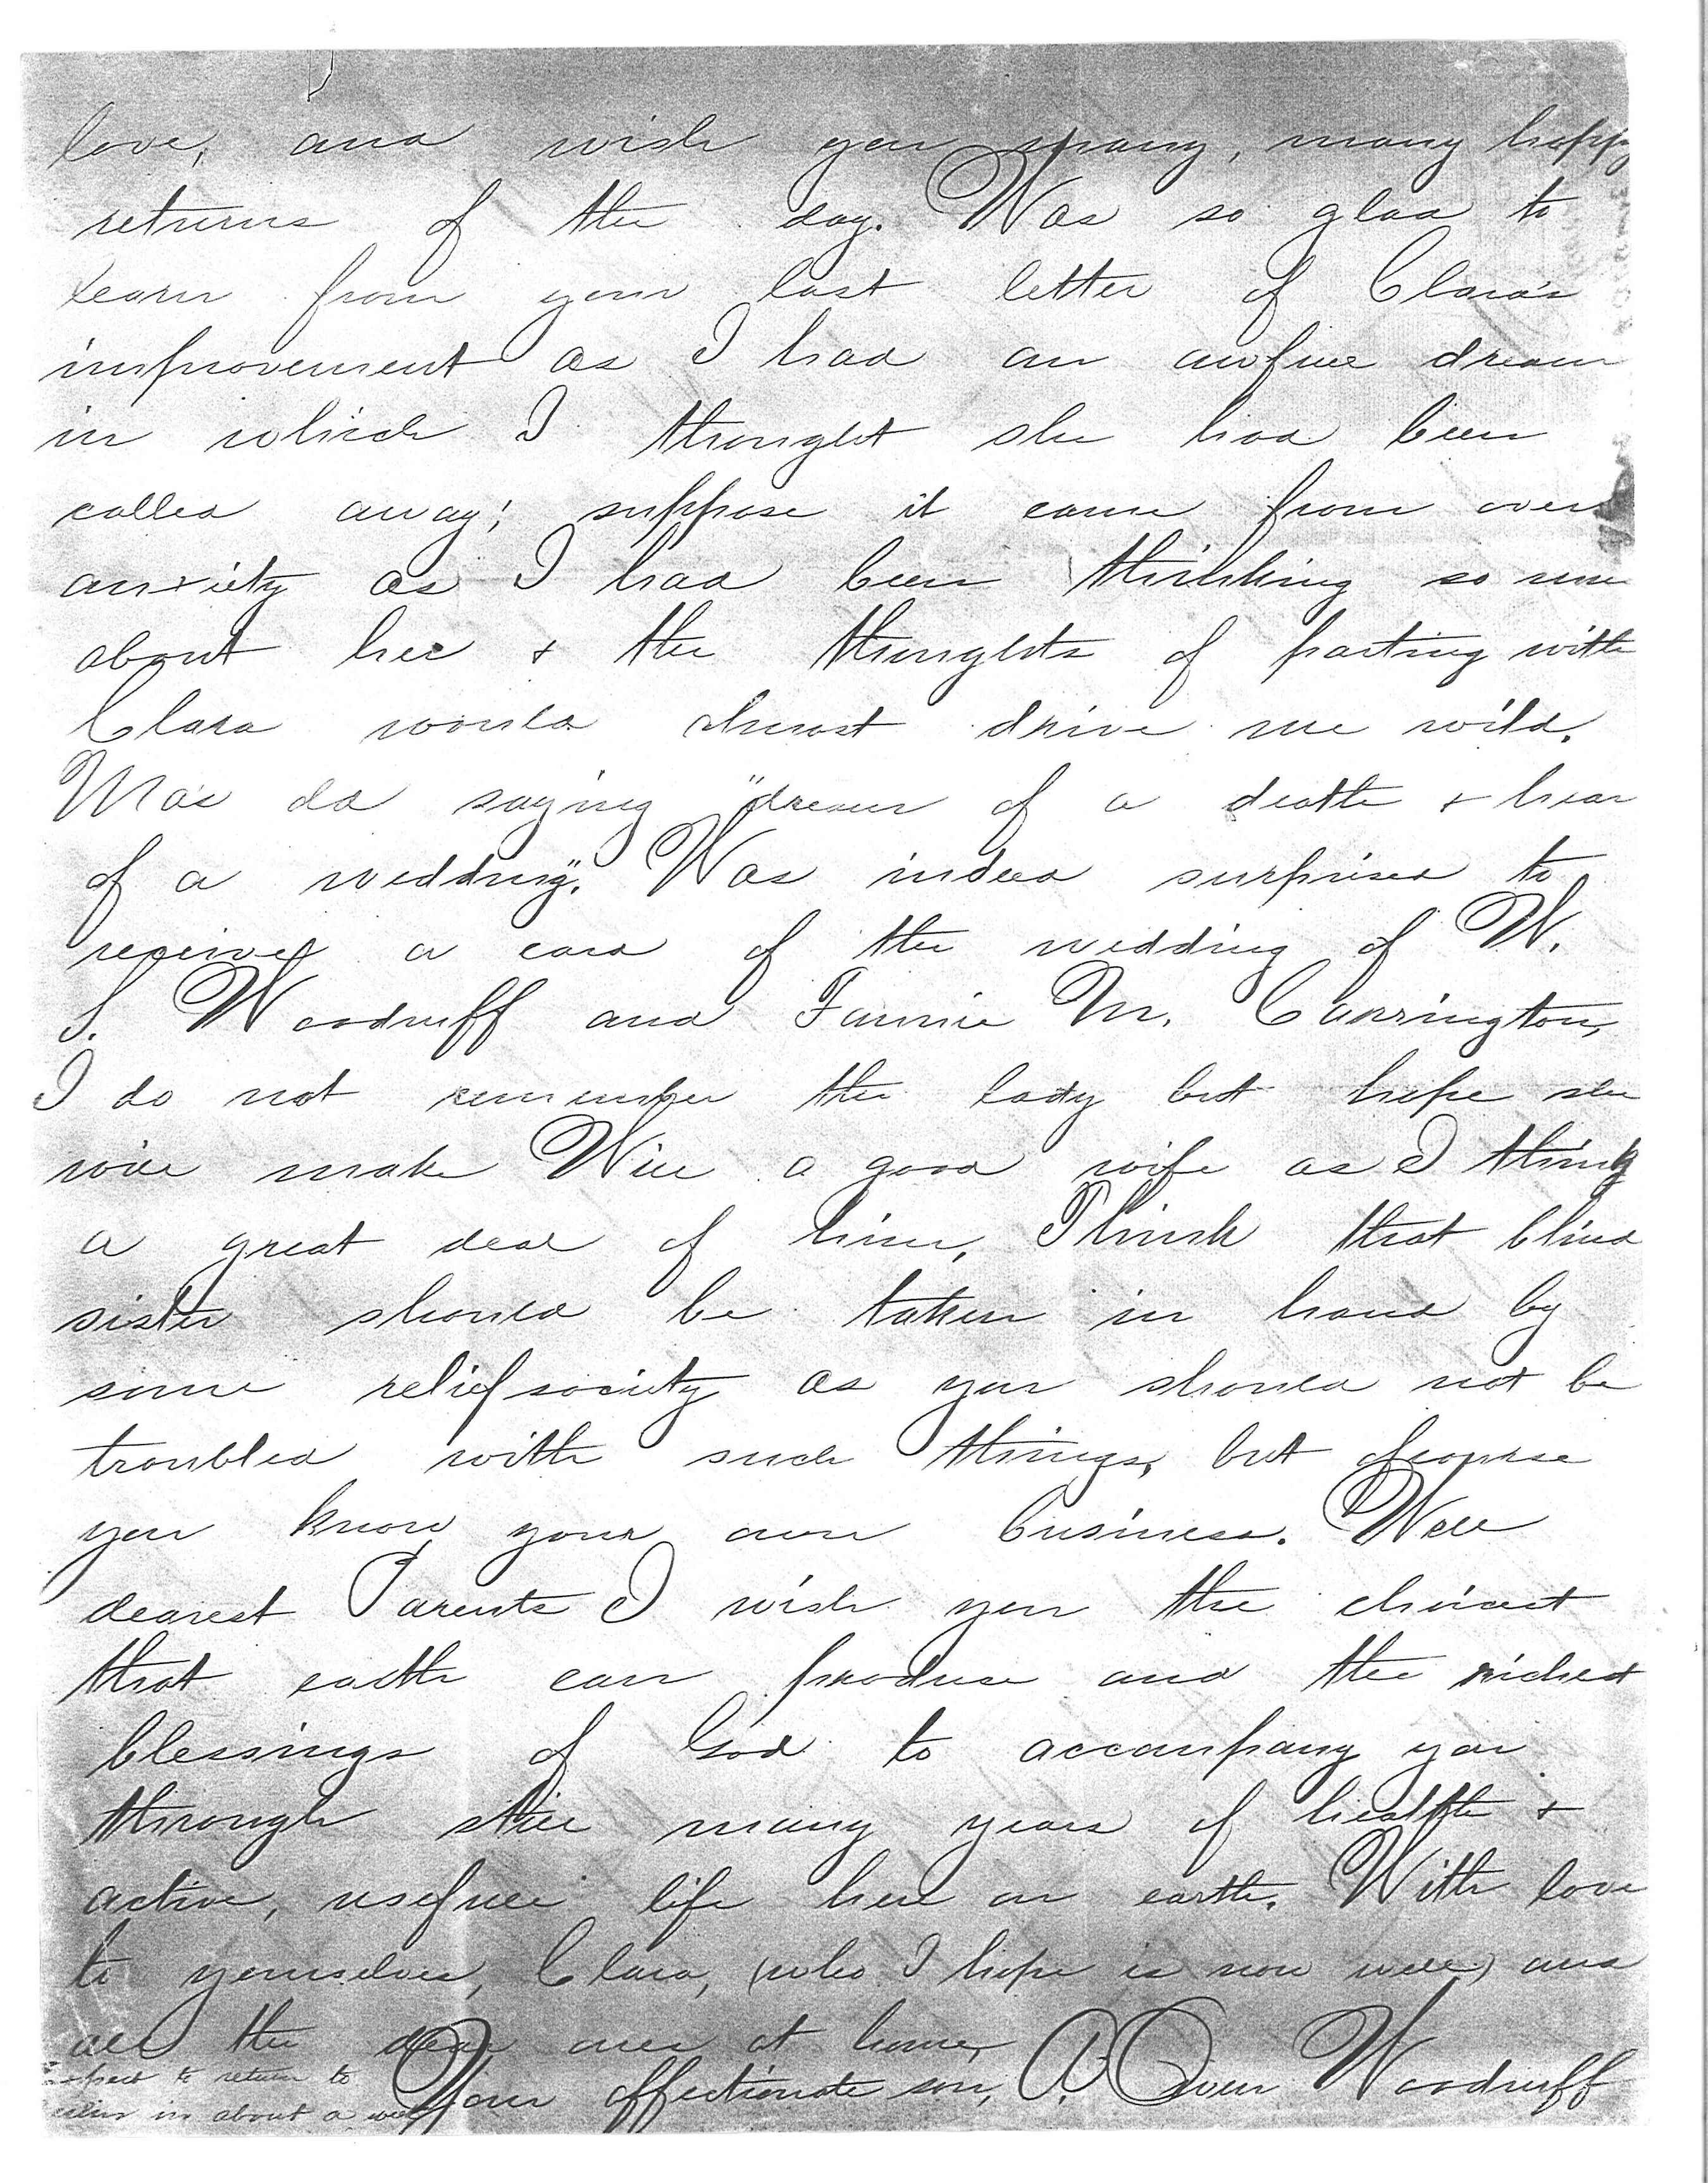 love, and wish you many, many happy
returns of the day. Was so glad to
learn from your last letter of Clara's
improvement as I had an awfull dream
in which I thought she had been
called away; suppose it came from over
anxiety as I had been thinking so
about her & the thoughts of parting with
Clara would almost drive me wild.
Ma's old saying "dream of a death & hear
of a wedding". Was indeed surprised to
receive a card of the wedding of W.
S. Woodruff and Fannie M. Carrington,
I do not remember the lady but hope she
will make Will a good wife as I think
a great deal of him, Think that blind
sister should be taken in hand by
some relief society as you should not be
troubled with such things, but ofcourse
you know your own business. Well
dearest Parents I wish you the choicest
that earth can produce and the richest
blessings of God to accompany you
through still many years of health &
active, usefull life here on earth. With love
to yourselves, Clara, (who I hope is now well) and
all the dear ones at home,
Your affectionate son, A. Owen Woodruff
Expect to return to
in about a week